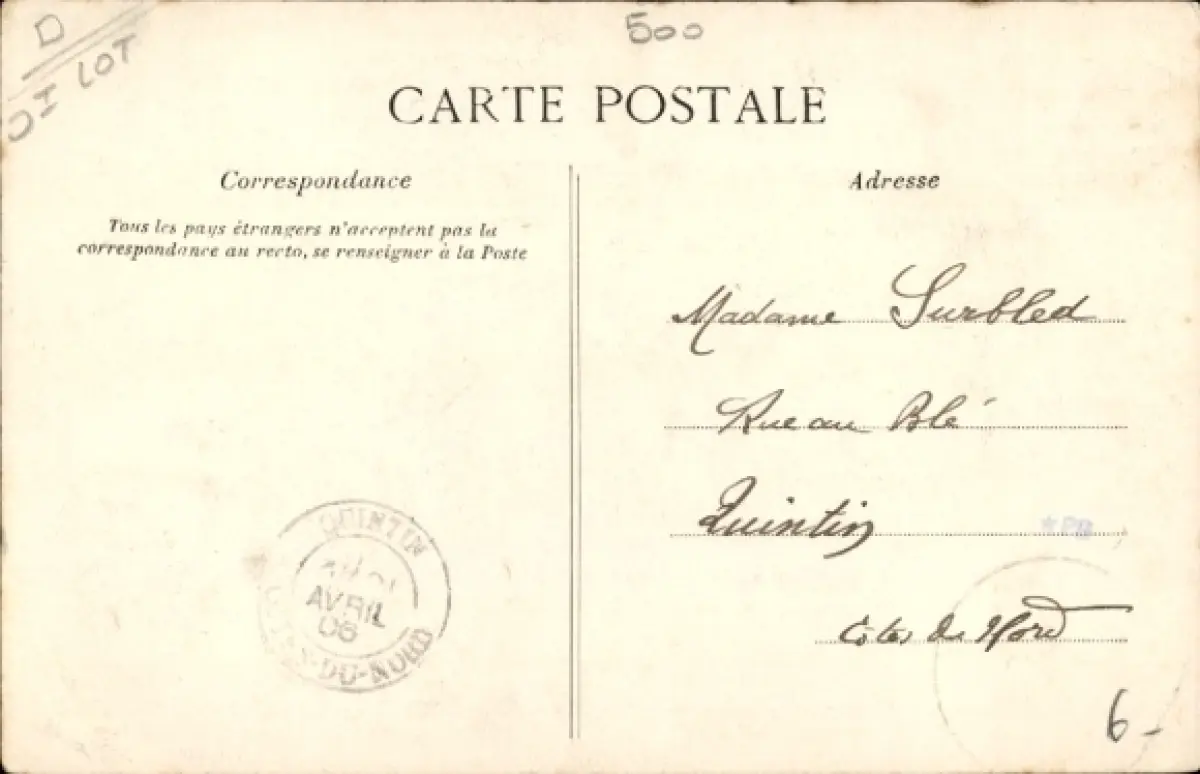 D
LOT
500
CARTE POSTALE
Correspondance
Tous les pays étrangers n'acceptent pas la
correspondance au recto, se renseigner à la Poste
Adresse
Madame Surbled
Rue au Blé
Quintin
*PB
Côtes du Nord
QUINTIN
AVRIL
06
-DU-NORD
6-